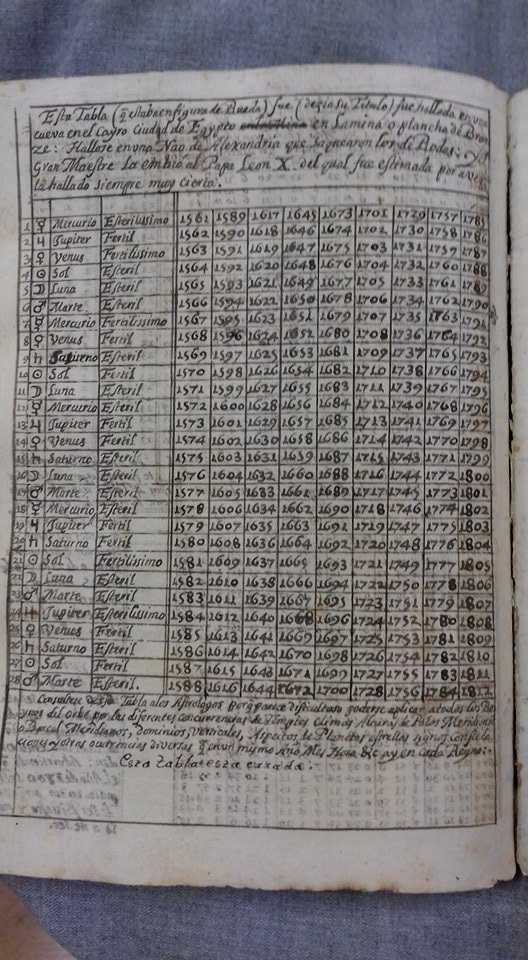 Esta Tabla (q estaba en figura de Rueda) fue (dezia su Titulo) fue hallada en una
cueva en el Cayro Ciudad de Egypto en Lamina o plancha de Bron
ze: Hallose en una Nao de Alexandria que saquearon los de Rodas: y
Gran Maestre la embio al Papa Leon X. del qual fue estimada por averse
la hallado siempre muy cierta.
1 ☿ Mercurio Esterilissimo 1561 1589 1617 1645 1673 1701 1729 1757 1785
2 ♃ Jupiter Fertil 1562 1590 1618 1646 1674 1702 1730 1758 1786
3 ♀ Venus Fertilissimo 1563 1591 1619 1647 1675 1703 1731 1759 1787
4 ☉ Sol Esteril 1564 1592 1620 1648 1676 1704 1732 1760 1788
5 ☽ Luna Esteril 1565 1593 1621 1649 1677 1705 1733 1761 1789
6 ♂ Marte Esteril 1566 1594 1622 1650 1678 1706 1734 1762 1790
7 ☿ Mercurio Fertilissimo 1567 1595 1623 1651 1679 1707 1735 1763 1791
8 ♀ Venus Fertil 1568 1596 1624 1652 1680 1708 1736 1764 1792
9 ♄ Saturno Esteril 1569 1597 1625 1653 1681 1709 1737 1765 1793
10 ☉ Sol Fertil 1570 1598 1626 1654 1682 1710 1738 1766 1794
11 ☽ Luna Esteril 1571 1599 1627 1655 1683 1711 1739 1767 1795
12 ☿ Mercurio Esteril 1572 1600 1628 1656 1684 1712 1740 1768 1796
13 ♃ Jupiter Fertil 1573 1601 1629 1657 1685 1713 1741 1769 1797
14 ♀ Venus Fertil 1574 1602 1630 1658 1686 1714 1742 1770 1798
15 ♄ Saturno Esteril 1575 1603 1631 1659 1687 1715 1743 1771 1799
16 ☽ Luna Esteril 1576 1604 1632 1660 1688 1716 1744 1772 1800
17 ♂ Marte Esteril 1577 1605 1633 1661 1689 1717 1745 1773 1801
18 ☿ Mercurio Esteril 1578 1606 1634 1662 1690 1718 1746 1774 1802
19 ♃ Jupiter Fertil 1579 1607 1635 1663 1691 1719 1747 1775 1803
20 ♄ Saturno Fertil 1580 1608 1636 1664 1692 1720 1748 1776 1804
21 ☉ Sol Fertilissimo 1581 1609 1637 1665 1693 1721 1749 1777 1805
22 ☽ Luna Esteril 1582 1610 1638 1666 1694 1722 1750 1778 1806
23 ♂ Marte Esteril 1583 1611 1639 1667 1695 1723 1751 1779 1807
24 ♃ Jupiter Esterilissimo 1584 1612 1640 1668 1696 1724 1752 1780 1808
25 ♀ Venus Fertil 1585 1613 1641 1669 1697 1725 1753 1781 1809
26 ♄ Saturno Esteril 1586 1614 1642 1670 1698 1726 1754 1782 1810
27 ☉ Sol Fertil 1587 1615 1643 1671 1699 1727 1755 1783 1811
28 ♂ Marte Esteril. 1588 1616 1644 1672 1700 1728 1756 1784 1812
Consultese desta Tabla a los Astrologos porq parece dificultoso poderse explicar a todos los Rey
nos del orbe por las diferentes concurrencias de Temples climas Altura de Polos Meridional
o Boreal Meridianos, dominios, verticales, Aspectos de Planetas estrellas signos constela
ciones y otras ocurrencias diversas q en un mismo Año Mes Hora &c ay en cada Reyno:-
Esta tabla esta errada.